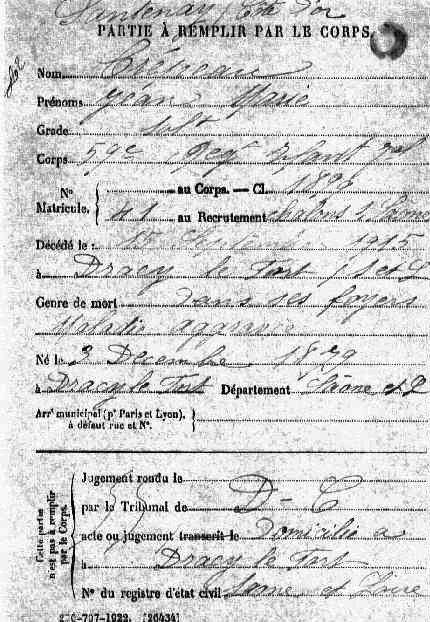 Santenay Côte d'Or
PARTIE À REMPLIR PAR LE CORPS.
Nom
Prénoms Jean Marie
Grade
Corps 59e Reg Infant
au Corps. — Cl. 1899
N° Matricule. 41 au Recrutement Chalons s Saône
Décédé le : Septembre 1915
à Dracy le Fort S et L
Genre de mort dans ses foyers
Maladie aggravée
Né le 3 Décembre 1879
à Dracy le Fort Département Saône et L
Arrt municipal (pr Paris et Lyon),
à défaut rue et N°.
Cette partie n'est pas à remplir par le Corps.
Jugement rendu le
par le Tribunal de D - C
acte ou jugement transcrit le Domicilié a
à Dracy le Fort
N° du registre d'état civil Saone et Loire
270-707-1922. [26434]